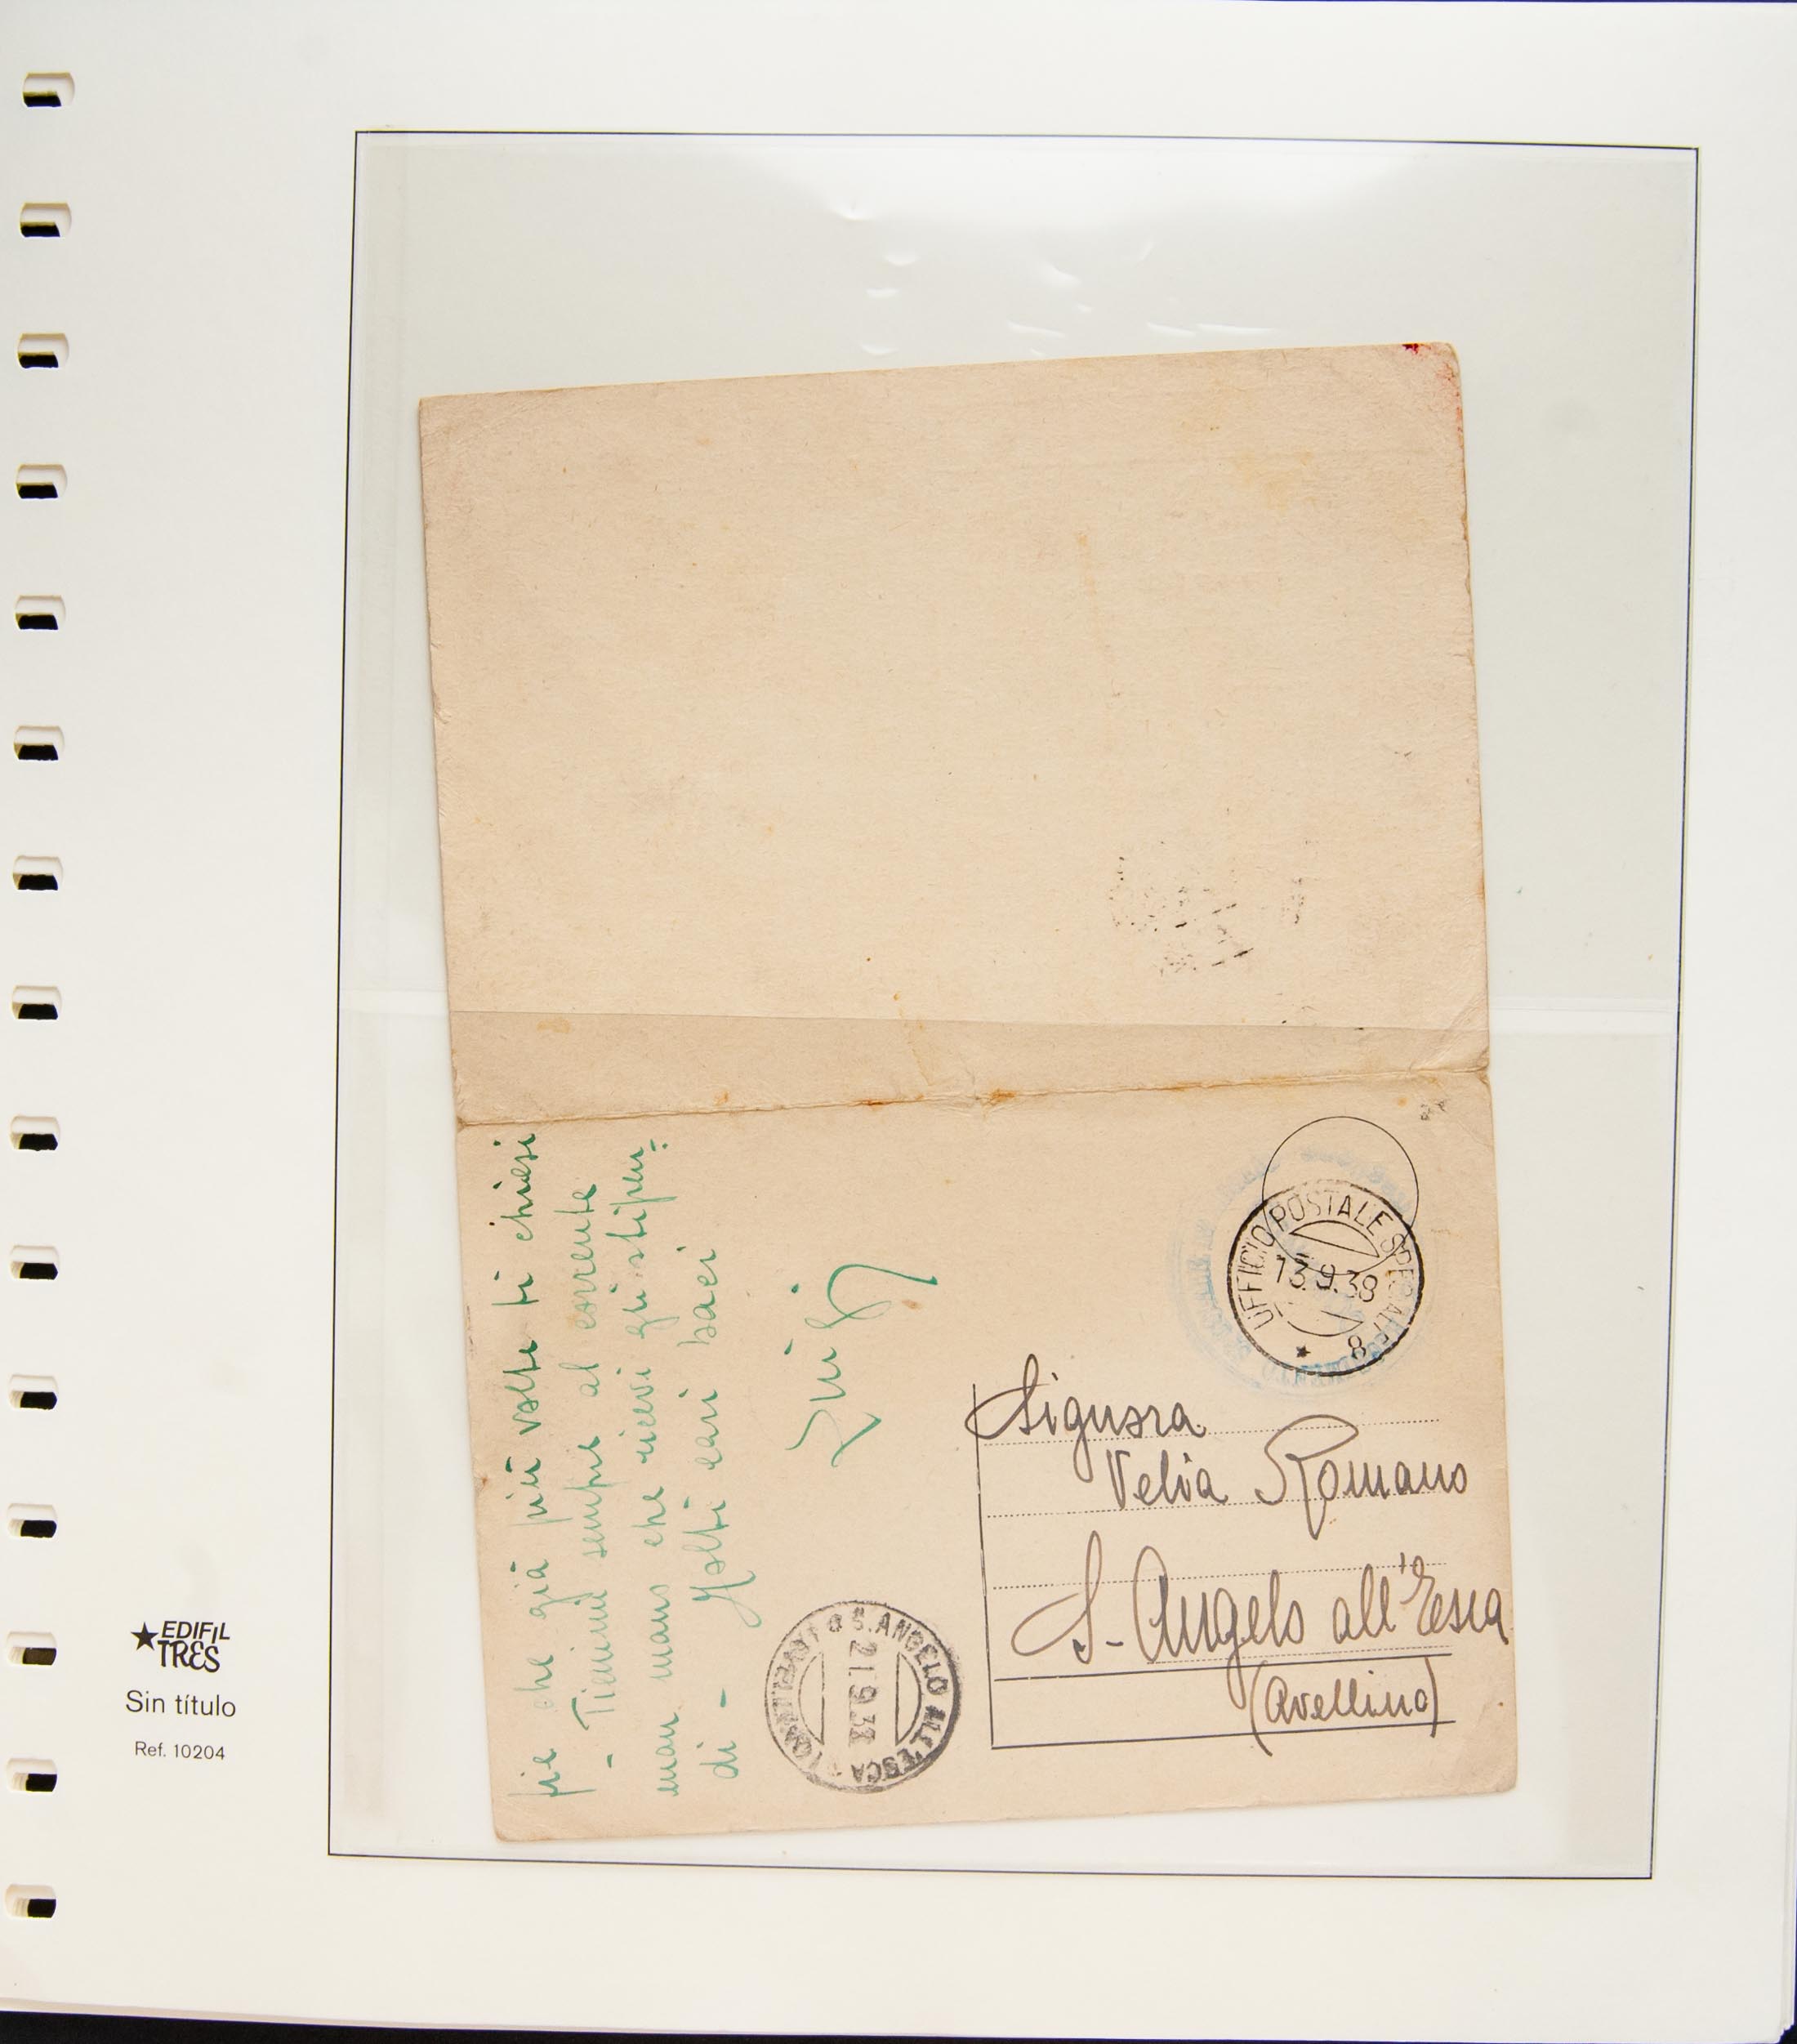 fie che già più volte ti chiesi
- Tienimi sempre al corrente
man mano che ricevi gli stipen=
di - Molti cari baci
Luigi
UFFICIO POSTALE SPECIALE
13.9.38
8
Signora
Velia Romano
S. Angelo all'Esca
(Avellino)
S. ANGELO ALL'ESCA (AVELLINO)
21.9.38
EDIFIL
TRES
Sin título
Ref. 10204